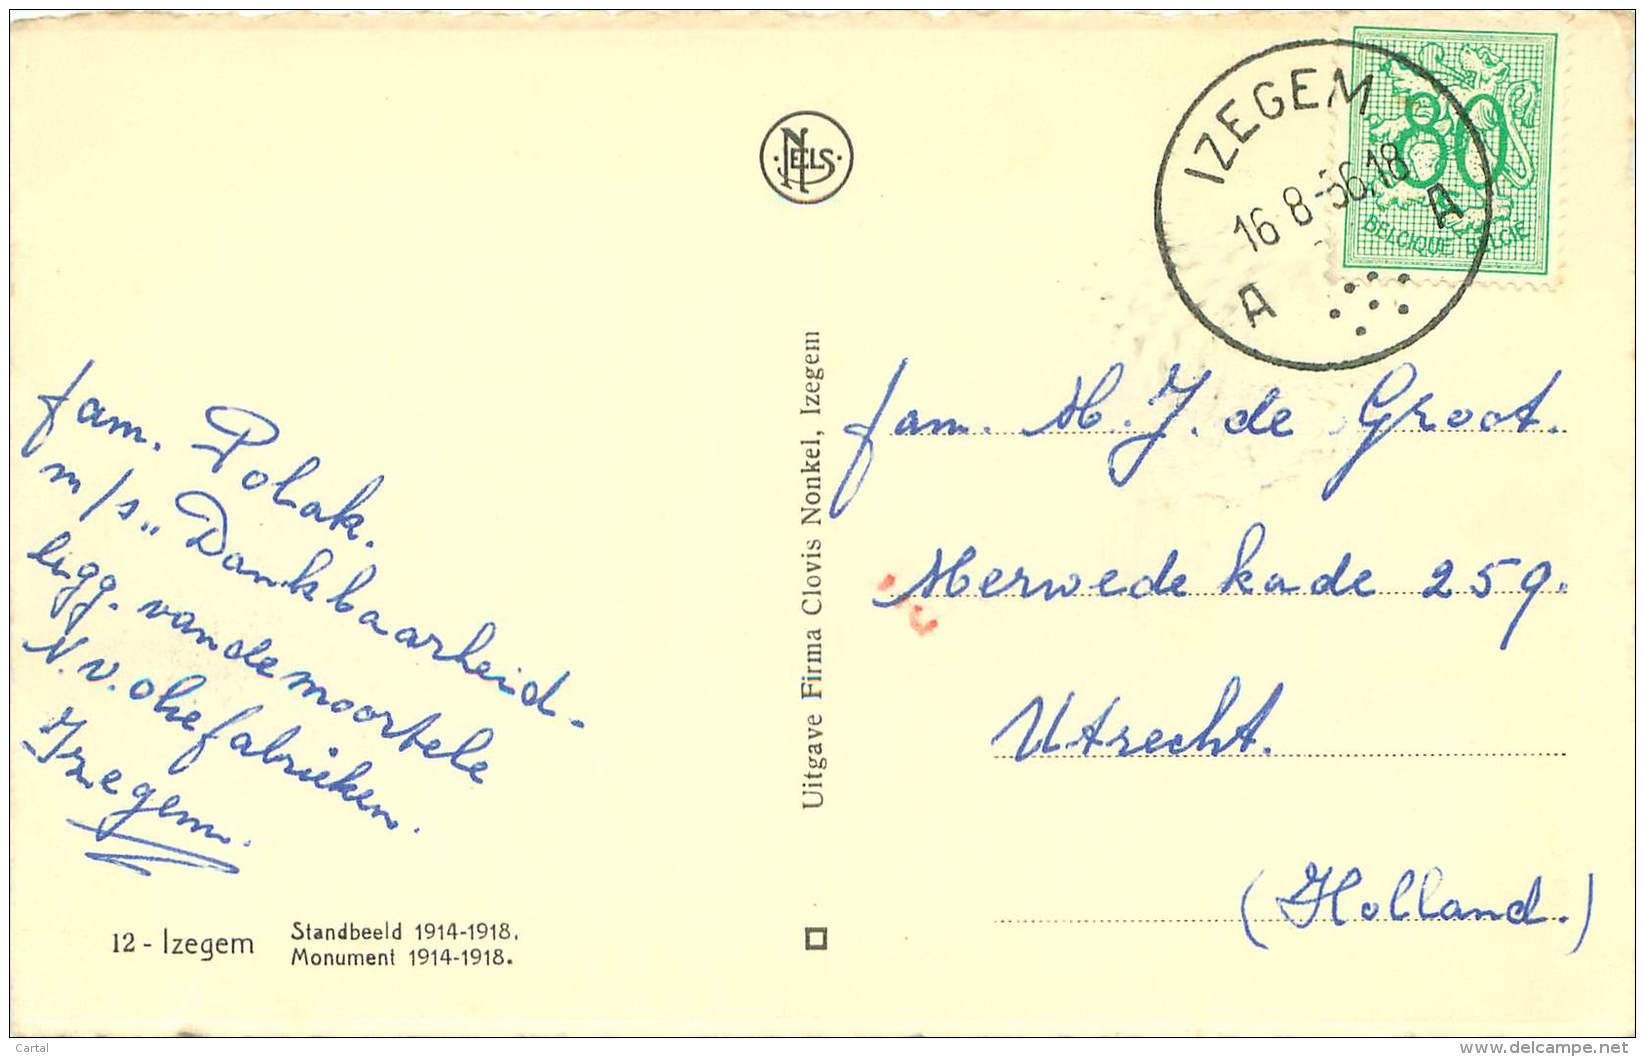 IZEGEM
16-8-56.18
A A
80
BELGIQUE-BELGIË
NELS
fam. Polak.
m/s „Dankbaarheid-
ligg. vandemoortele
N.V. oliefabrieken.
Izegem.
Uitgave Firma Clovis Nonkel, Izegem
fam. M. J. de Groot.
Merwedekade 259.
Utrecht.
(Holland.)
12 - Izegem
Standbeeld 1914-1918.
Monument 1914-1918.
Cartal
delcampe.net